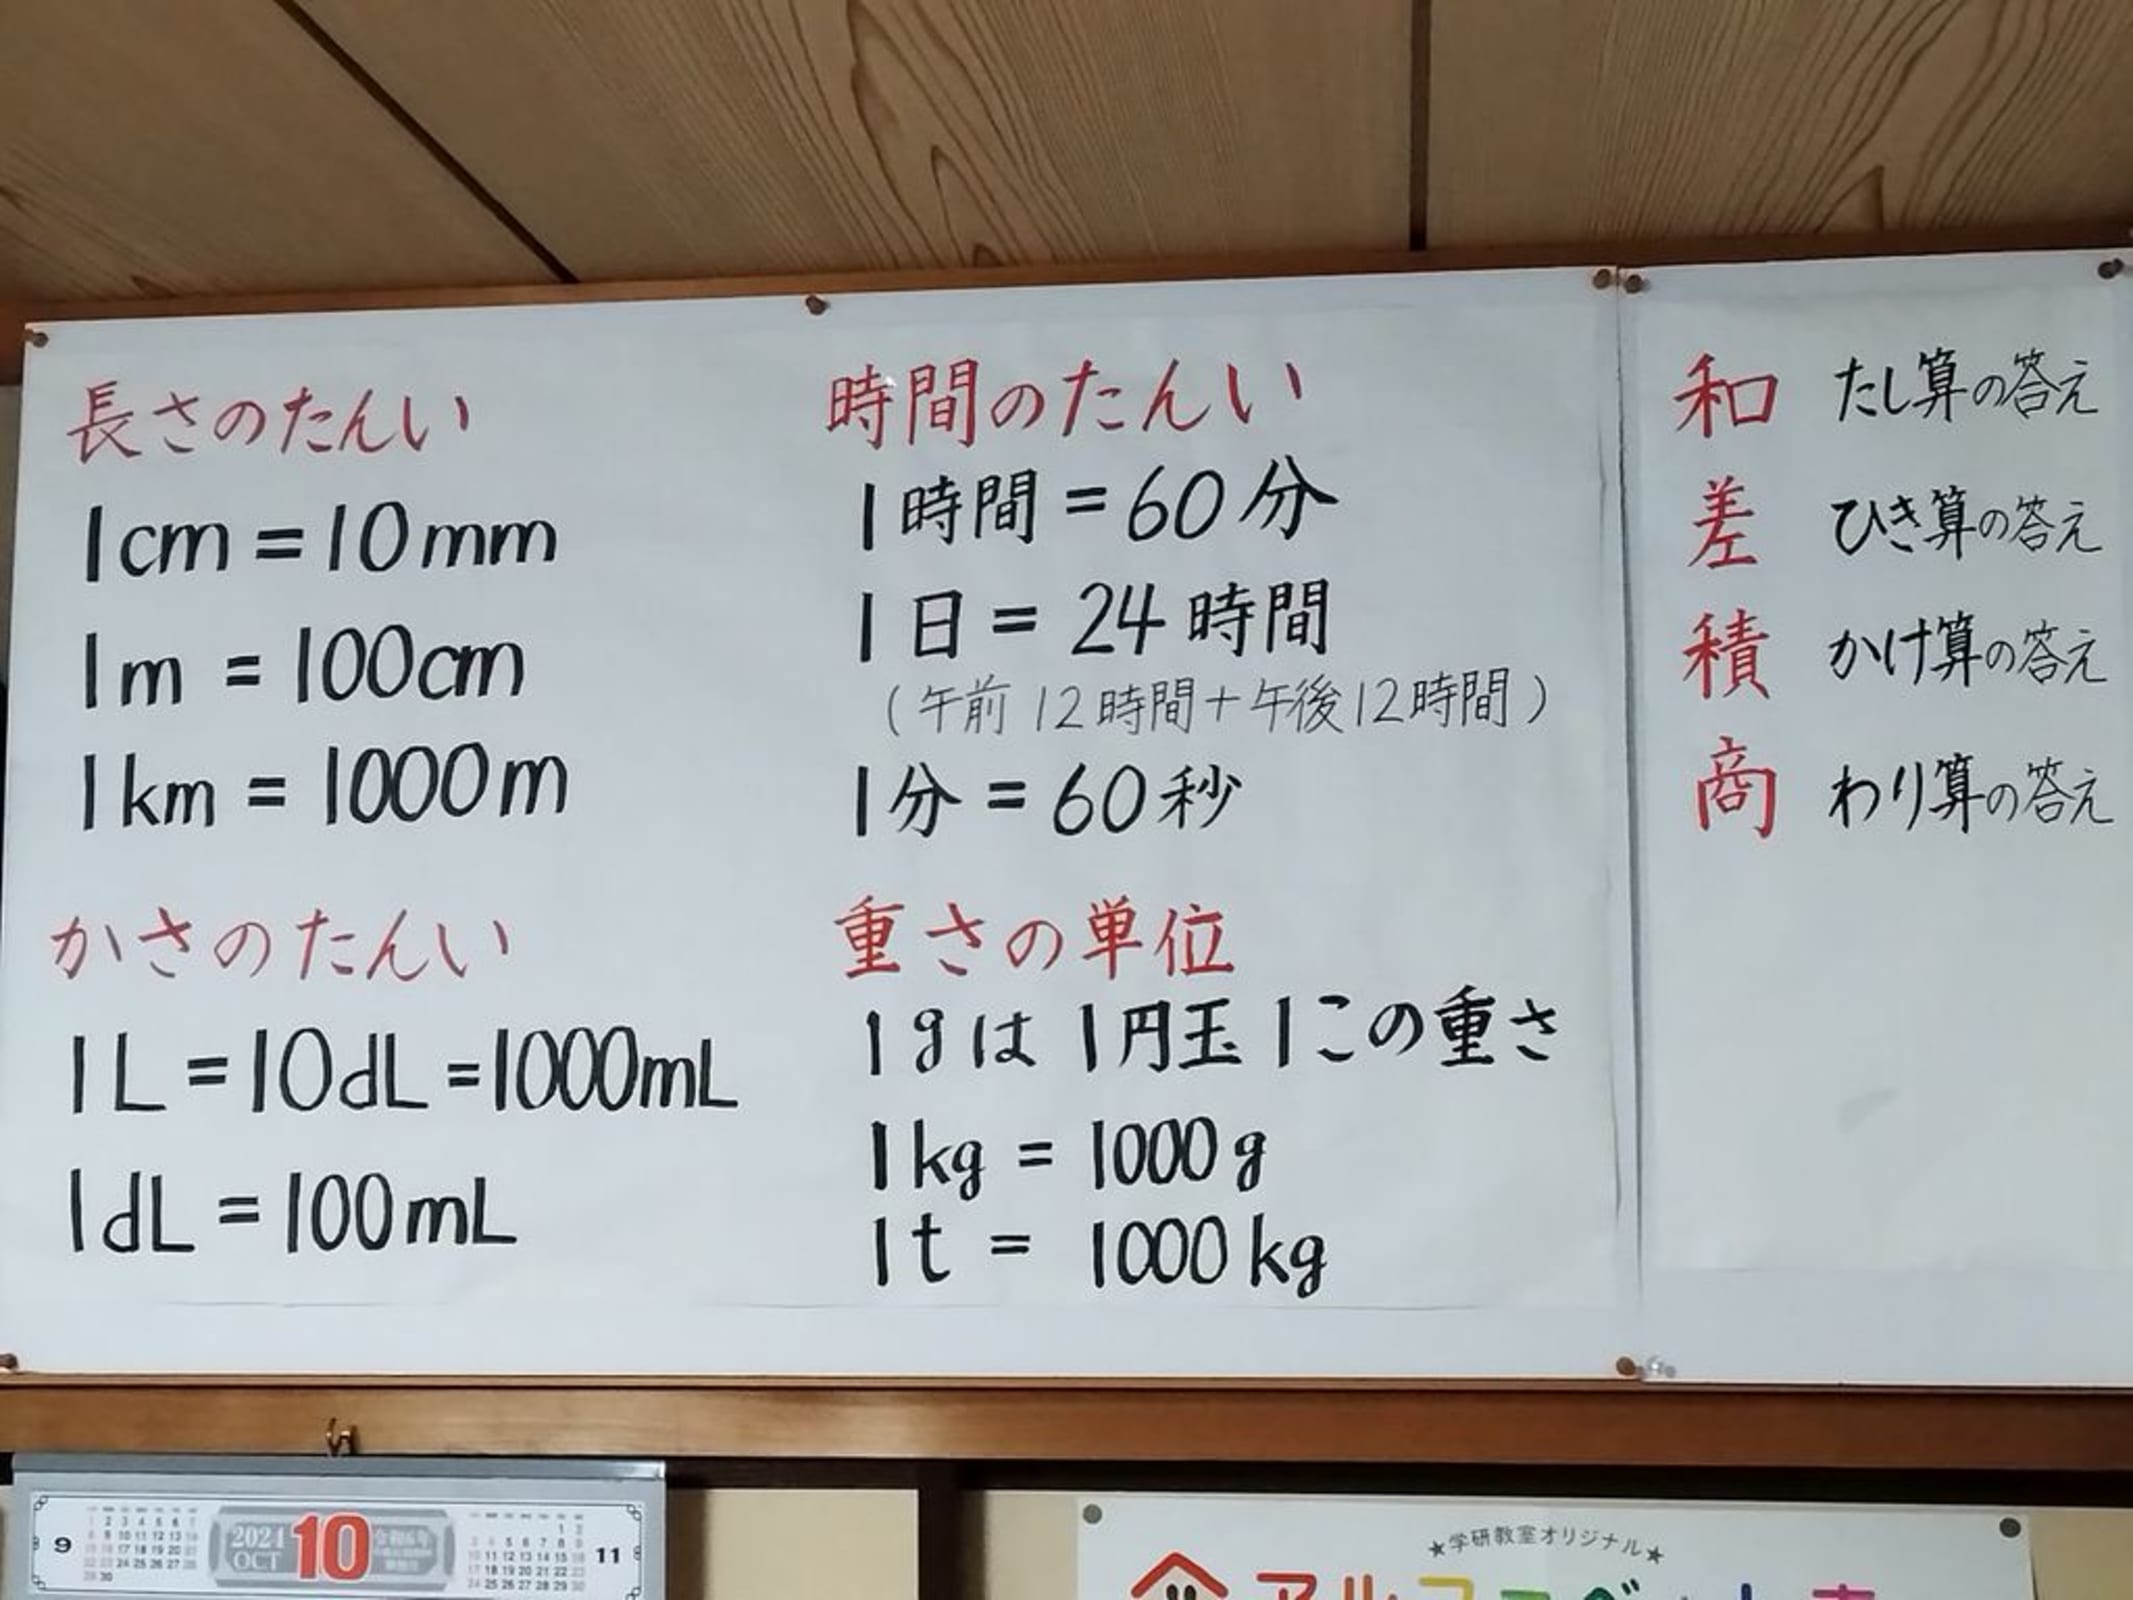 長さのたんい
1cm = 10mm
1m = 100cm
1km = 1000m
かさのたんい
1L = 10dL = 1000mL
1dL = 100mL
時間のたんい
1時間 = 60分
1日 = 24時間
(午前12時間+午後12時間)
1分 = 60秒
重さの単位
1gは 1円玉1この重さ
1kg = 1000g
1t = 1000kg
和 たし算の答え
差 ひき算の答え
積 かけ算の答え
商 わり算の答え
9
2024
OCT
10
11
★学研教室オリジナル★